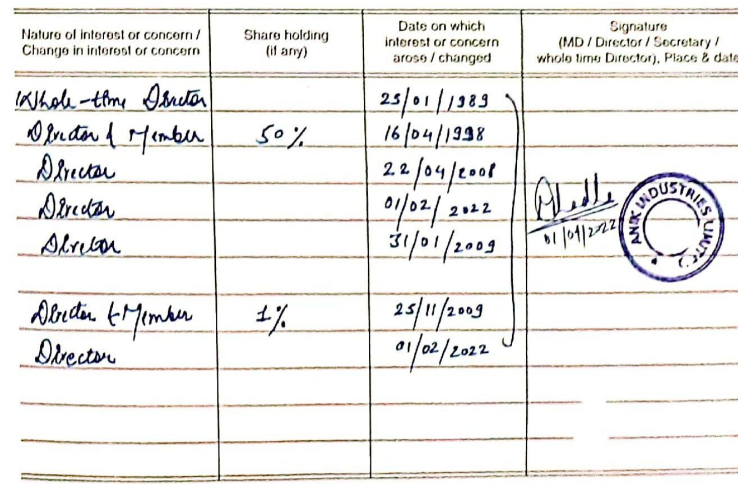 Nature of interest or concern / Change in interest or concern
Share holding (if any)
Date on which interest or concern arose / changed
Signature (MD / Director / Secretary / whole time Director), Place & date
Whole-time Director 25/01/1989
Director & Member 50% 16/04/1998
Director 22/04/2008
Director 01/02/2022
Director 31/01/2009
01/04/2022
ANIK INDUSTRIES LIMITED
Director & Member 1% 25/11/2009
Director 01/02/2022